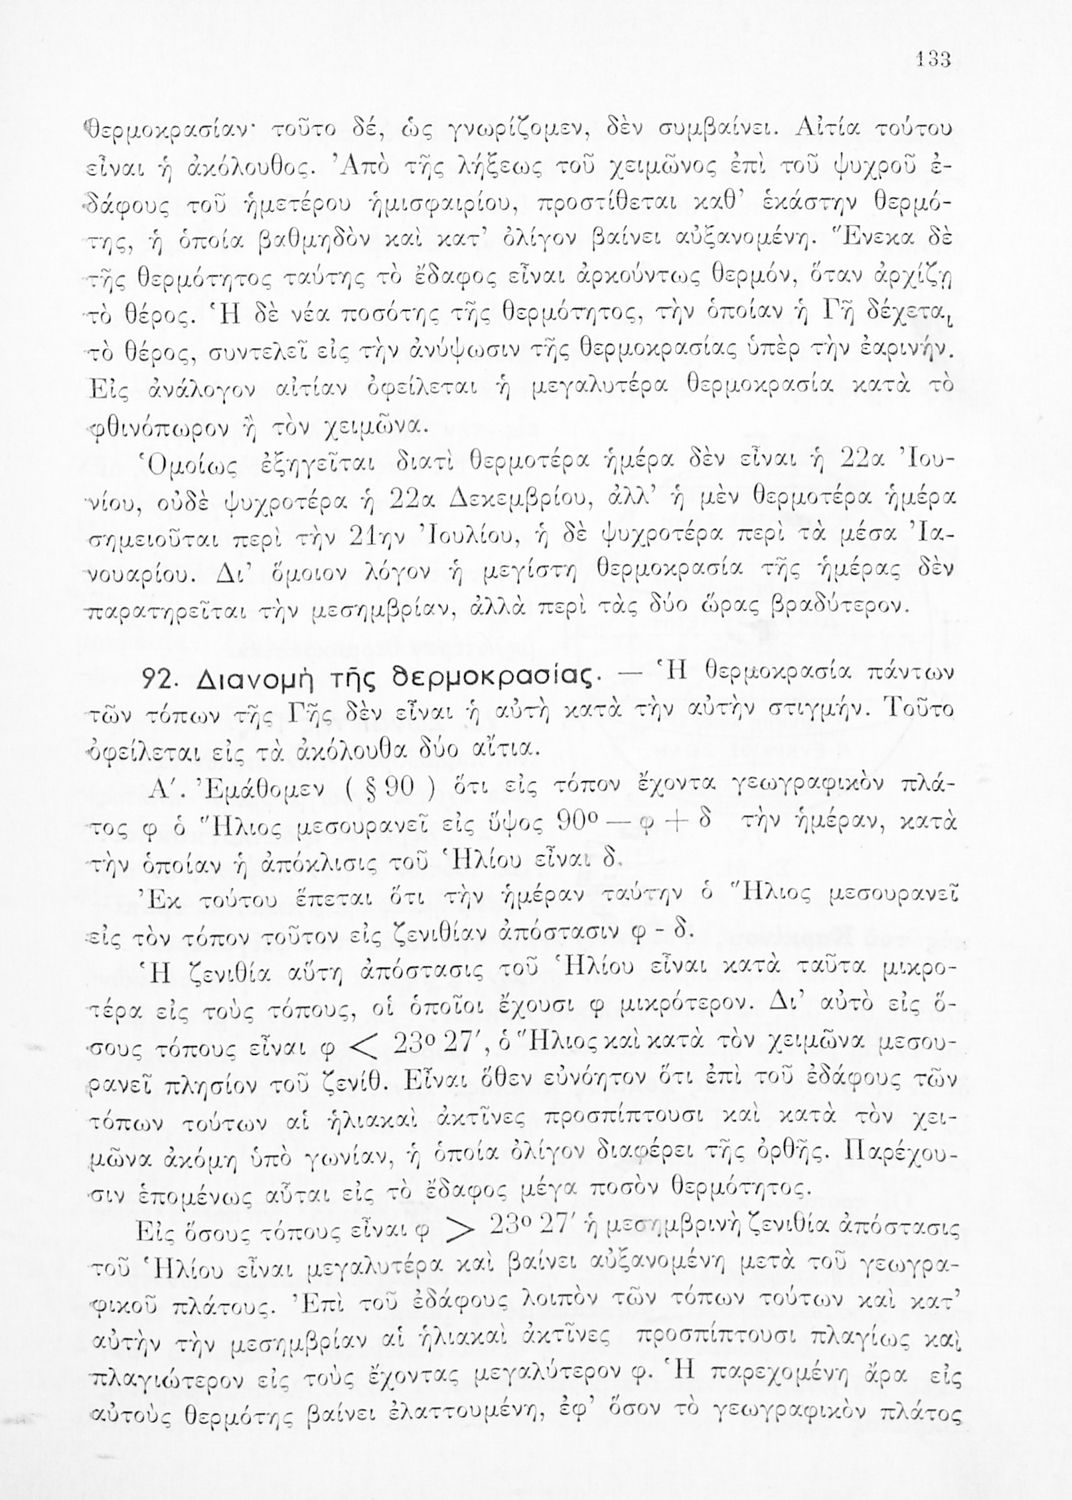 133
θερμοκρασίαν· τοῦτο δέ, ὡς γνωρίζομεν, δὲν συμβαίνει. Αἰτία τούτου
εἶναι ἡ ἀκόλουθος. Ἀπὸ τῆς λήξεως τοῦ χειμῶνος ἐπὶ τοῦ ψυχροῦ ἐ-
δάφους τοῦ ἡμετέρου ἡμισφαιρίου, προστίθεται καθ’ ἑκάστην θερμό-
της, ἡ ὁποία βαθμηδὸν καὶ κατ’ ὀλίγον βαίνει αὐξανομένη. Ἕνεκα δὲ
τῆς θερμότητος ταύτης τὸ ἔδαφος εἶναι ἀρκούντως θερμόν, ὅταν ἀρχίζῃ
τὸ θέρος. Ἡ δὲ νέα ποσότης τῆς θερμότητος, τὴν ὁποίαν ἡ Γῆ δέχεται
τὸ θέρος, συντελεῖ εἰς τὴν ἀνύψωσιν τῆς θερμοκρασίας ὑπὲρ τὴν ἐαρινήν.
Εἰς ἀνάλογον αἰτίαν ὀφείλεται ἡ μεγαλυτέρα θερμοκρασία κατὰ τὸ
φθινόπωρον ἢ τὸν χειμῶνα.
Ὁμοίως ἐξηγεῖται διατὶ θερμοτέρα ἡμέρα δὲν εἶναι ἡ 22α Ἰου-
νίου, οὐδὲ ψυχροτέρα ἡ 22α Δεκεμβρίου, ἀλλ’ ἡ μὲν θερμοτέρα ἡμέρα
σημειοῦται περὶ τὴν 21ην Ἰουλίου, ἡ δὲ ψυχροτέρα περὶ τὰ μέσα Ἰα-
νουαρίου. Δι’ ὅμοιον λόγον ἡ μεγίστη θερμοκρασία τῆς ἡμέρας δὲν
παρατηρεῖται τὴν μεσημβρίαν, ἀλλὰ περὶ τὰς δύο ὥρας βραδύτερον.
92. Διανομὴ τῆς θερμοκρασίας. — Ἡ θερμοκρασία πάντων
τῶν τόπων τῆς Γῆς δὲν εἶναι ἡ αὐτὴ κατὰ τὴν αὐτὴν στιγμήν. Τοῦτο
ὀφείλεται εἰς τὰ ἀκόλουθα δύο αἴτια.
Α΄. Ἐμάθομεν ( § 90 ) ὅτι εἰς τόπον ἔχοντα γεωγραφικὸν πλά-
τος φ ὁ Ἥλιος μεσουρανεῖ εἰς ὕψος 90° — φ + δ τὴν ἡμέραν, κατὰ
τὴν ὁποίαν ἡ ἀπόκλισις τοῦ Ἡλίου εἶναι δ.
Ἐκ τούτου ἕπεται ὅτι τὴν ἡμέραν ταύτην ὁ Ἥλιος μεσουρανεῖ
εἰς τὸν τόπον τοῦτον εἰς ζενιθίαν ἀπόστασιν φ - δ.
Ἡ ζενιθία αὕτη ἀπόστασις τοῦ Ἡλίου εἶναι κατὰ ταῦτα μικρο-
τέρα εἰς τοὺς τόπους, οἱ ὁποῖοι ἔχουσι φ μικρότερον. Δι’ αὐτὸ εἰς ὅ-
σους τόπους εἶναι φ < 23° 27΄, ὁ Ἥλιος καὶ κατὰ τὸν χειμῶνα μεσου-
ρανεῖ πλησίον τοῦ ζενίθ. Εἶναι ὅθεν εὐνόητον ὅτι ἐπὶ τοῦ ἐδάφους τῶν
τόπων τούτων αἱ ἡλιακαὶ ἀκτῖνες προσπίπτουσι καὶ κατὰ τὸν χει-
μῶνα ἀκόμη ὑπὸ γωνίαν, ἡ ὁποία ὀλίγον διαφέρει τῆς ὀρθῆς. Παρέχου-
σιν ἑπομένως αὗται εἰς τὸ ἔδαφος μέγα ποσὸν θερμότητος.
Εἰς ὅσους τόπους εἶναι φ > 23° 27΄ ἡ μεσημβρινὴ ζενιθία ἀπόστασις
τοῦ Ἡλίου εἶναι μεγαλυτέρα καὶ βαίνει αὐξανομένη μετὰ τοῦ γεωγρα-
φικοῦ πλάτους. Ἐπὶ τοῦ ἐδάφους λοιπὸν τῶν τόπων τούτων καὶ κατ’
αὐτὴν τὴν μεσημβρίαν αἱ ἡλιακαὶ ἀκτῖνες προσπίπτουσι πλαγίως καὶ
πλαγιώτερον εἰς τοὺς ἔχοντας μεγαλύτερον φ. Ἡ παρεχομένη ἄρα εἰς
αὐτοὺς θερμότης βαίνει ἐλαττουμένη, ἐφ’ ὅσον τὸ γεωγραφικὸν πλάτος